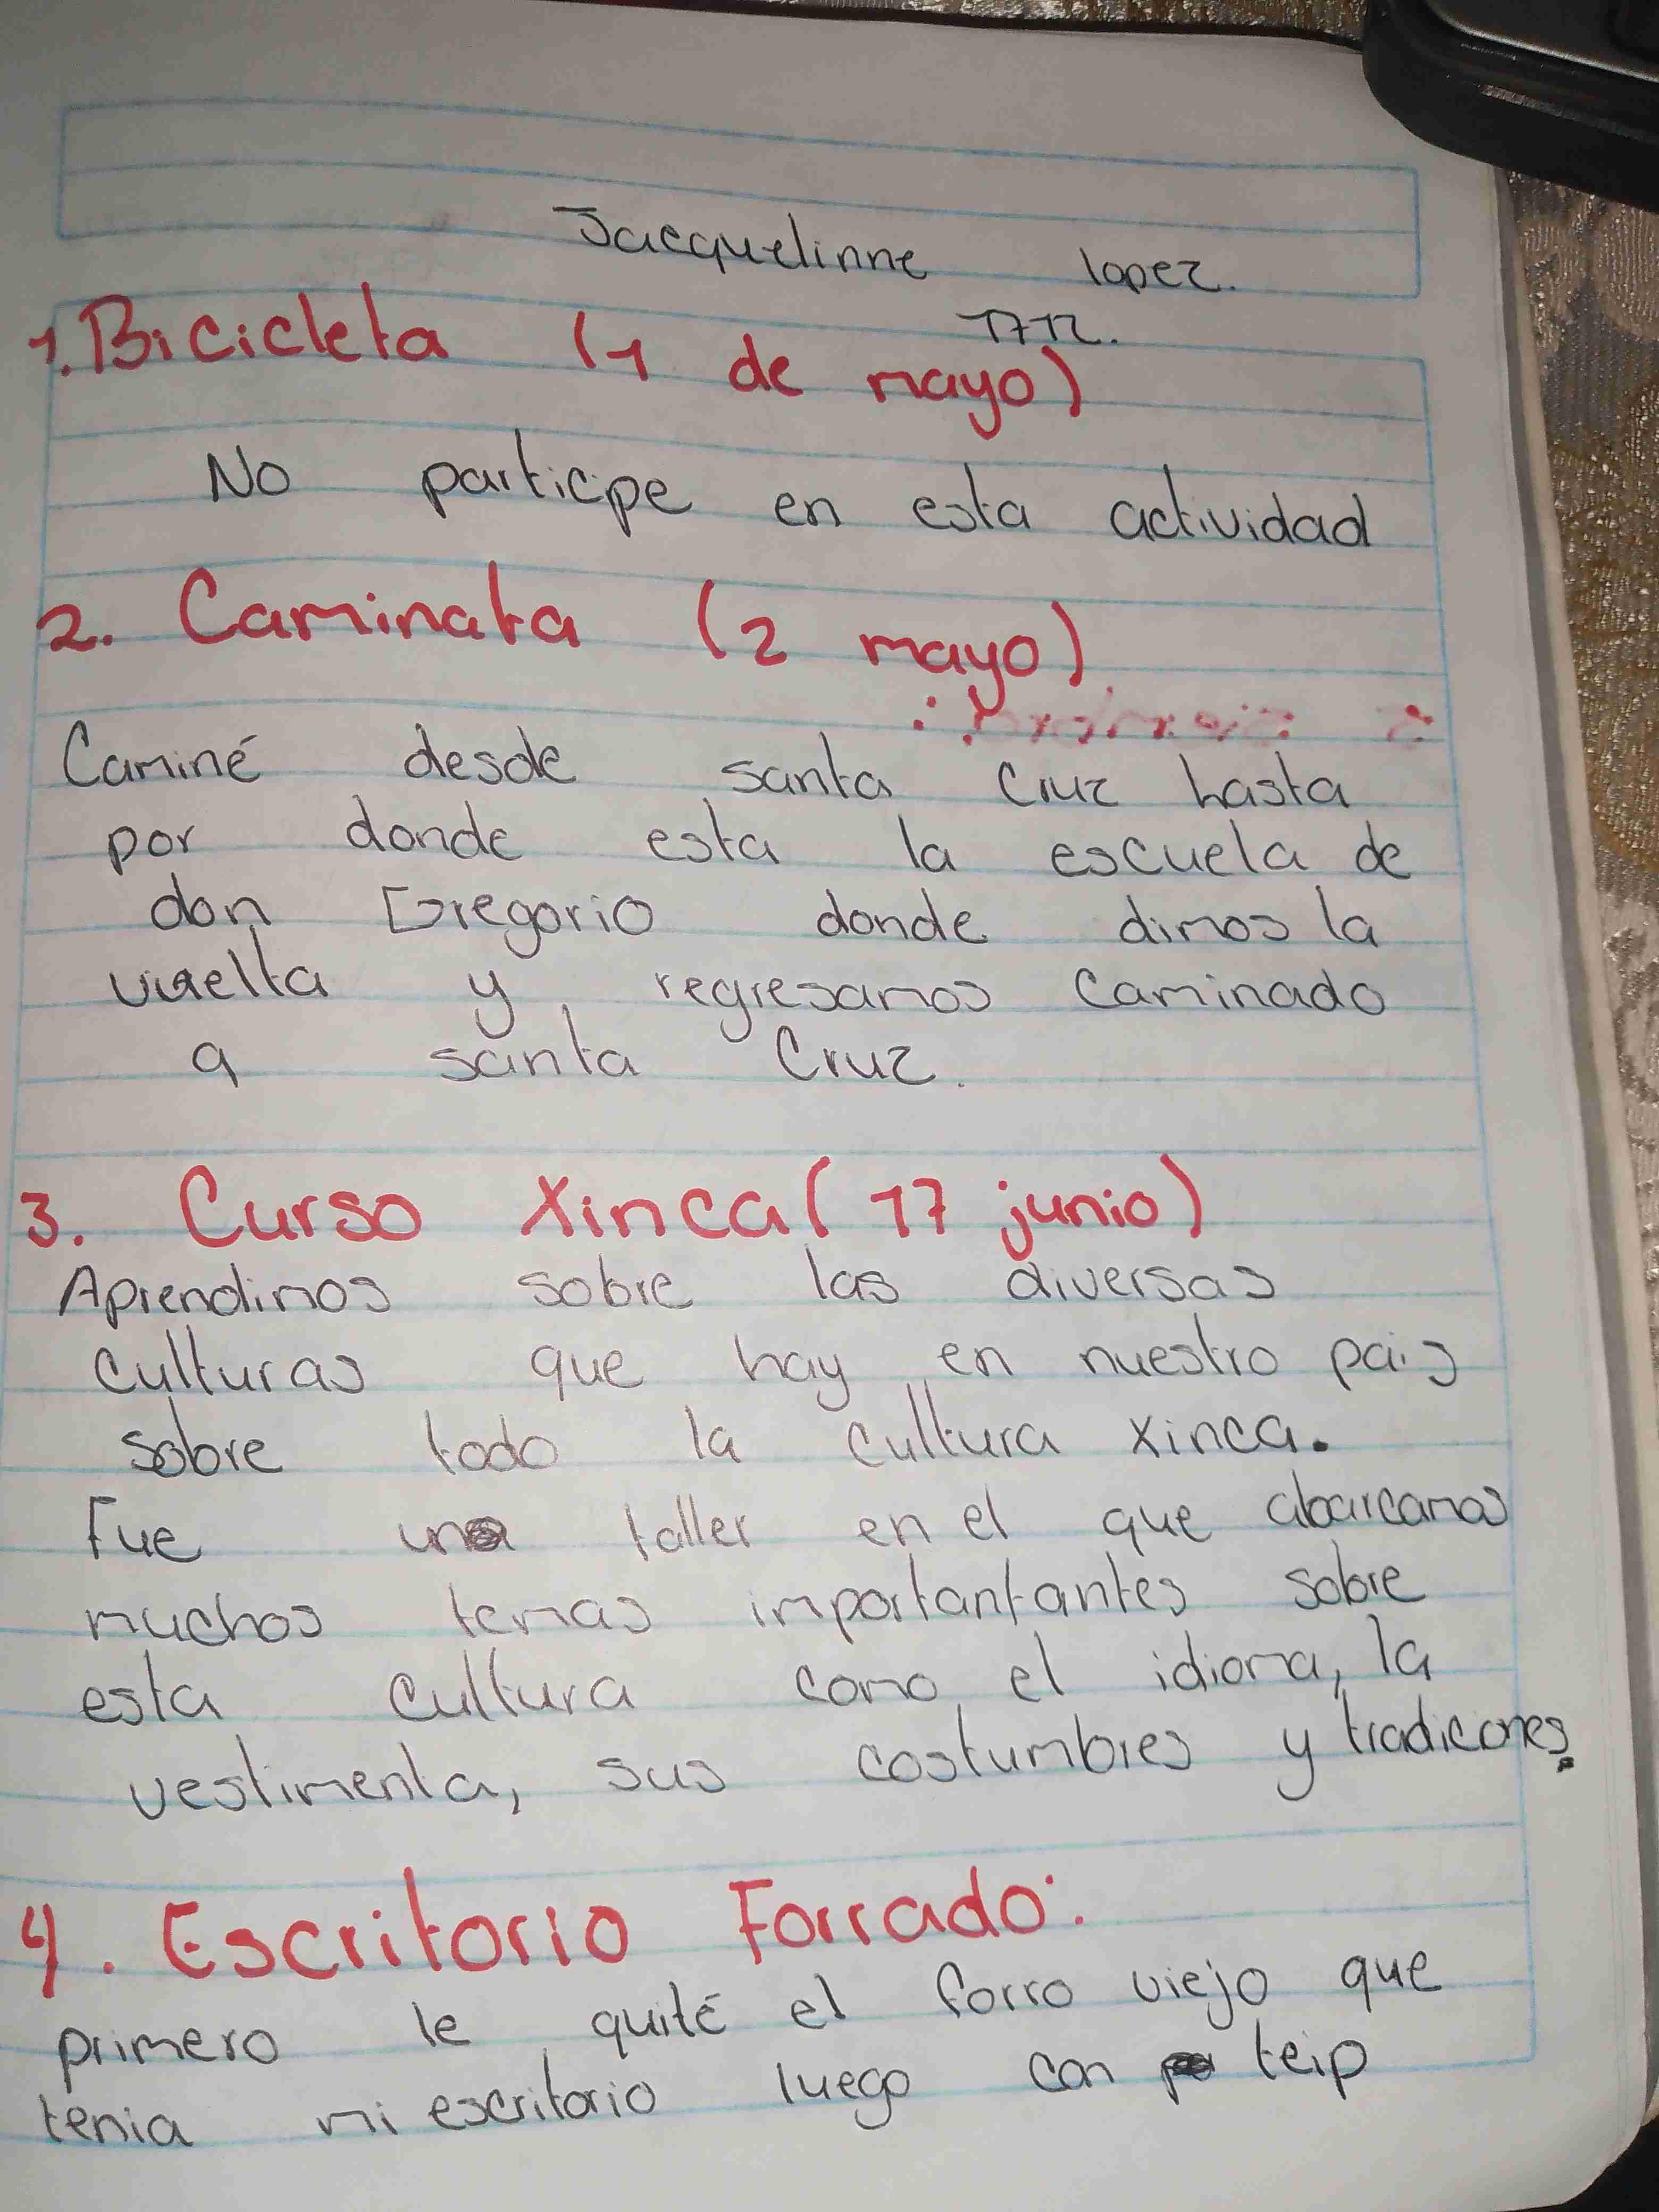 Jacquelinne lopez.
1712.
1. Bicicleta (1 de mayo)
No particpe en esta actividad
2. Caminata (2 mayo)
Caminé desde santa Cruz hasta
por donde esta la escuela de
don Gregorio donde dimos la
vuelta y regresamos caminado
a santa Cruz.
3. Curso Xinca (17 junio)
Aprendimos sobre las diversas
culturas que hay en nuestro pais
sobre todo la cultura xinca.
Fue un taller en el que abarcamos
muchos temas importantantes sobre
esta cultura como el idioma, la
vestimenta, sus costumbres y tradicones.
4. Escritorio Forrado:
primero le quité el forro viejo que
tenia mi escritorio luego con teip